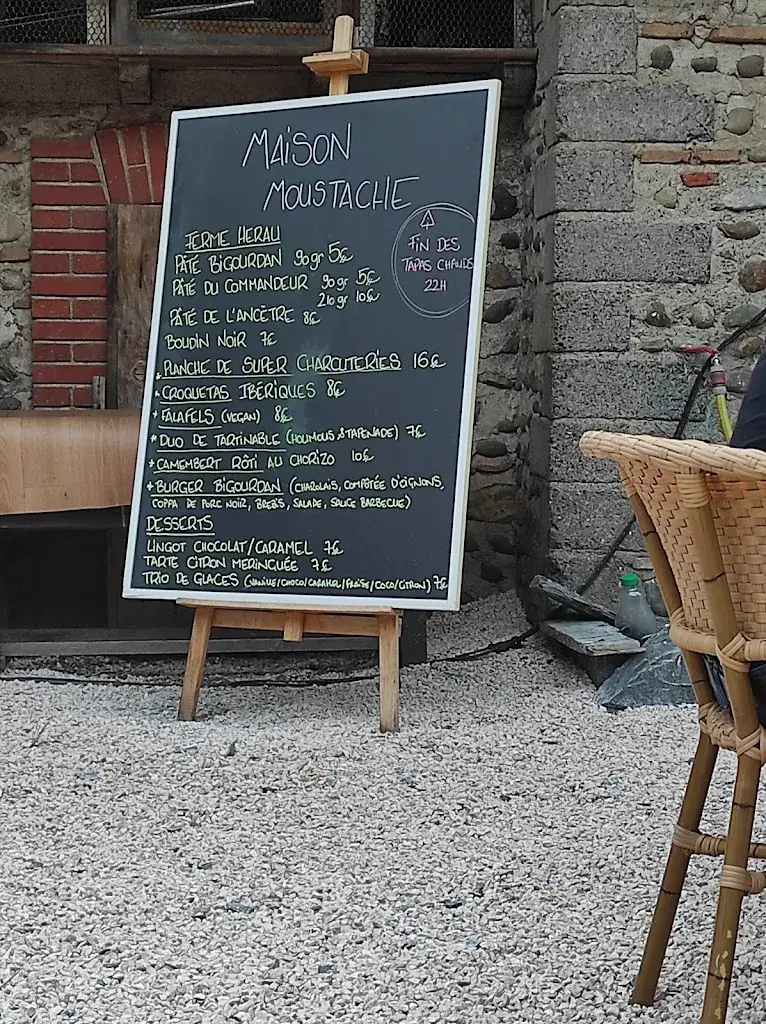 MAISON
MOUSTACHE
FIN DES
TAPAS CHAUDS
22H
FERME HERAU
PÂTÉ BIGOURDAN 90gr 5€
PÂTÉ DU COMMANDEUR 90gr 5€
210gr 10€
PÂTÉ DE L'ANCÊTRE 8€
BOUDIN NOIR 7€
* PLANCHE DE SUPER CHARCUTERIES 16€
* CROQUETAS IBÉRIQUES 8€
* FALAFELS (VEGAN) 8€
* DUO DE TARTINABLE (HOUMOUS & TAPENADE) 7€
* CAMEMBERT RÔTI AU CHORIZO 10€
* BURGER BIGOURDAN (CHAROLAIS, COMPÔTÉE D'OIGNONS,
COPPA DE PORC NOIR, BREBIS, SALADE, SAUCE BARBECUE)
DESSERTS
LINGOT CHOCOLAT/CARAMEL 7€
TARTE CITRON MERINGUÉE 7€
TRIO DE GLACES (VANILLE/CHOCO/CARAMEL/FRAISE/COCO/CITRON) 7€